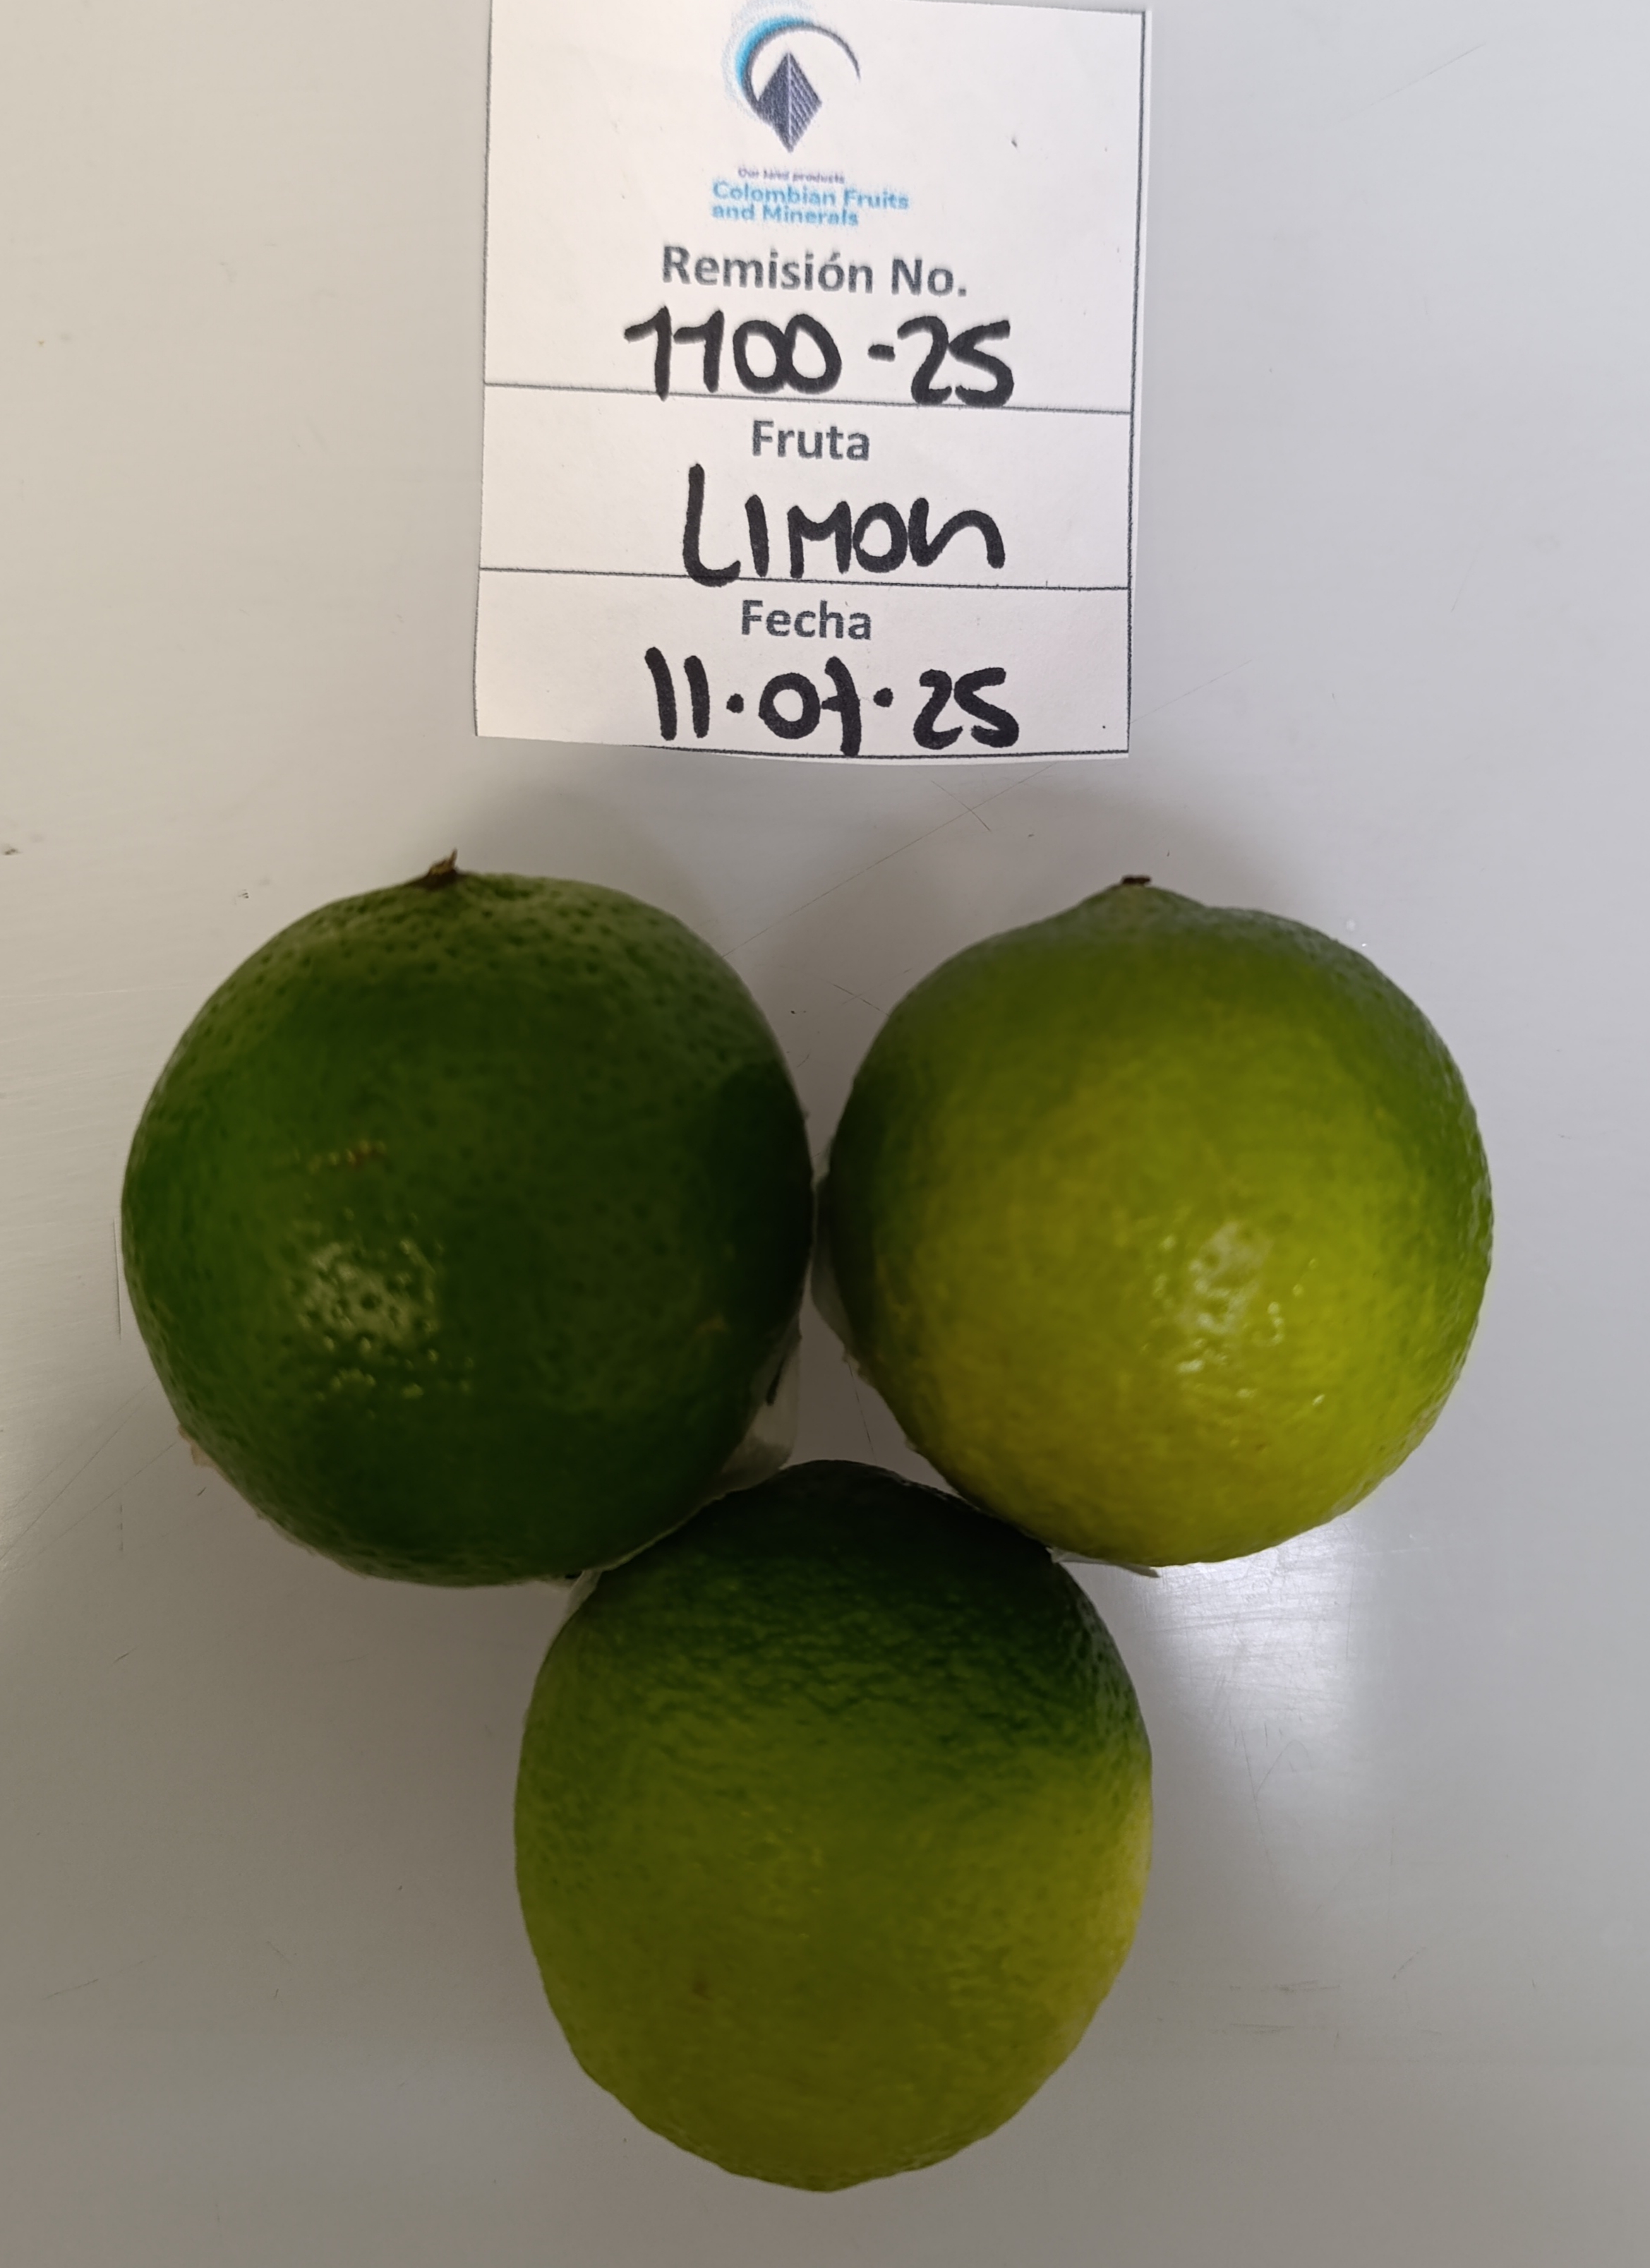 Our land products
Colombian Fruits
and Minerals
Remisión No.
1100-25
Fruta
LIMON
Fecha
11.07.25